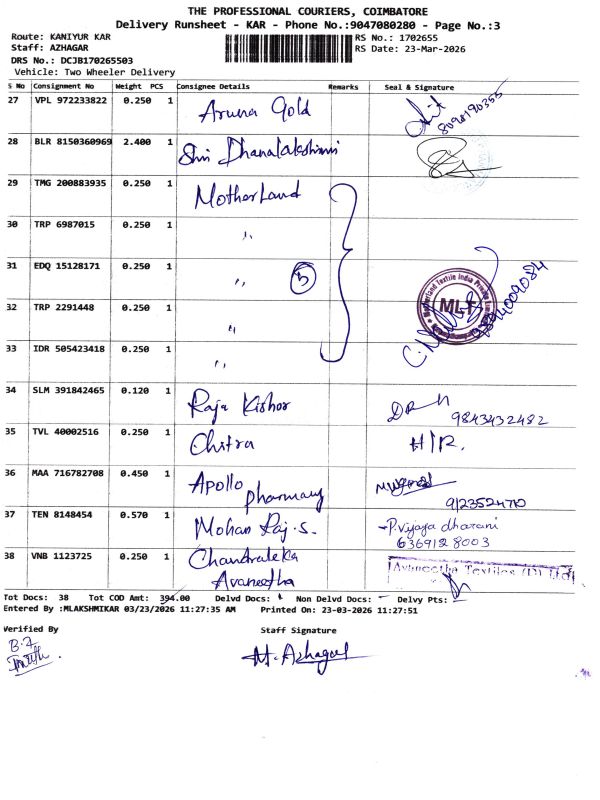 THE PROFESSIONAL COURIERS, COIMBATORE
Delivery Runsheet - KAR - Phone No.:9047080280 - Page No.:3
Route: KANIYUR KAR
Staff: AZHAGAR
DRS No.: DCJB170265503
Vehicle: Two Wheeler Delivery
RS No.: 1702655
RS Date: 23-Mar-2026
S No Consignment No Weight PCS Consignee Details Remarks Seal & Signature
27 VPL 972233822 0.250 1 Aruna Gold 8098190355
28 BLR 8150360969 2.400 1 Shri Dhanalakshmi
29 TMG 200883935 0.250 1 Motherland
30 TRP 6987015 0.250 1 "
31 EDQ 15128171 0.250 1 " 5
32 TRP 2291448 0.250 1 " MLT
33 IDR 505423418 0.250 1 "
34 SLM 391842465 0.120 1 Raja Kishor 9843432482
35 TVL 40002516 0.250 1 Chitra H/R.
36 MAA 716782708 0.450 1 Apollo pharmacy
37 TEN 8148454 0.570 1 Mohan Raj.S. P.vijaya dharani
6369128003
38 VNB 1123725 0.250 1 Chandraleka
Avaneetha
Avaneetha Textiles (P) Ltd
Tot Docs: 38 Tot COD Amt: 394.00 Delvd Docs: Non Delvd Docs: Delvy Pts:
Entered By :MLAKSHMIKAR 03/23/2026 11:27:35 AM Printed On: 23-03-2026 11:27:51
Verified By
Staff Signature
M. Azhagar